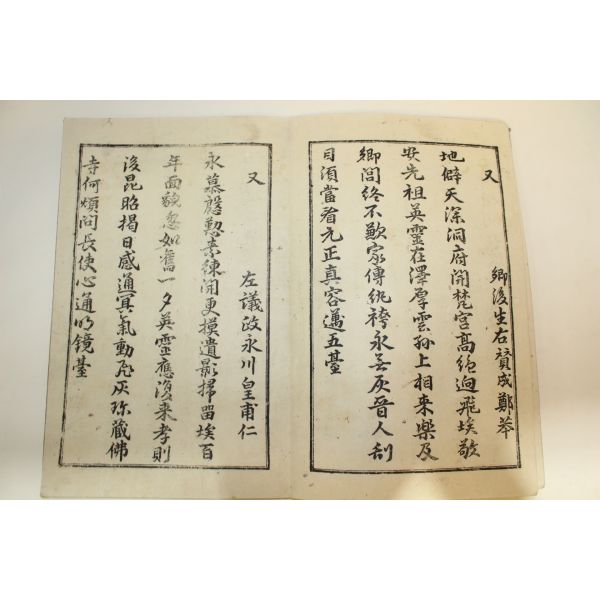 又
鄉後生右贊成鄭苯
地僻天深洞府開梵宮高絕迥飛埃敬
安先祖英靈在澤厚雲孫上相來樂及
鄉閭終不歉家傳紈袴永無灰晉人刮
目須當看元正真容邁五臺
又
左議政永川皇甫仁
永慕慇懃素練開更摸遺影掃留埃百
年面貌忽如舊一夕英靈應復来孝則
後昆昭揭日感通冥氣動飛灰珎藏佛
寺何煩問長使心通明鏡臺